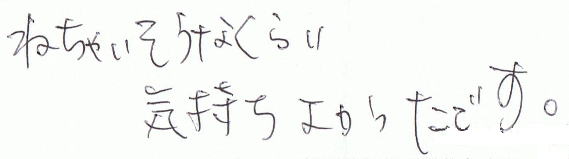 ねちゃいそうなくらい
気持ちよかったです。